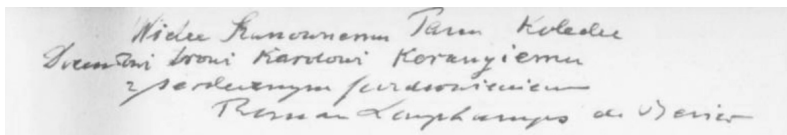 Wielce Szanownemu Panu Koledze
Docentowi Drowi Karolowi Koranyiemu
z serdecznym pozdrowieniem
Roman Longchamps de Berier